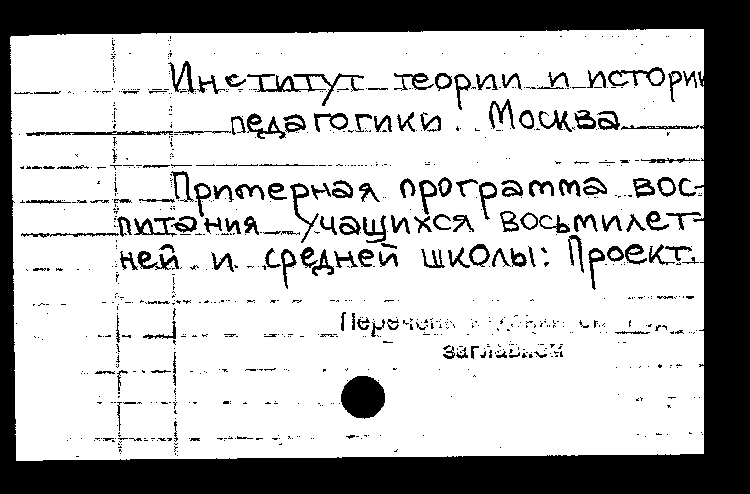 Институт теории и истории
педагогики. Москва.
Примерная программа вос-
питания учащихся восьмилет-
ней и средней школы: Проект.
Перечень